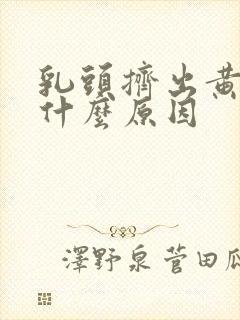 乳頭擠出黃
什麼原因
澤野泉 菅田瓜